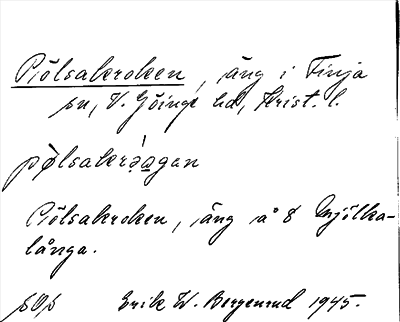 Pölsakroken, äng i Finja
sn, V. Göinge hd, Krist. l.
pø̀lsakrəàgan
Pölsakroken, äng å 8 Mjölka-
långa.
sOs Erik W. Bergenrud 1945.